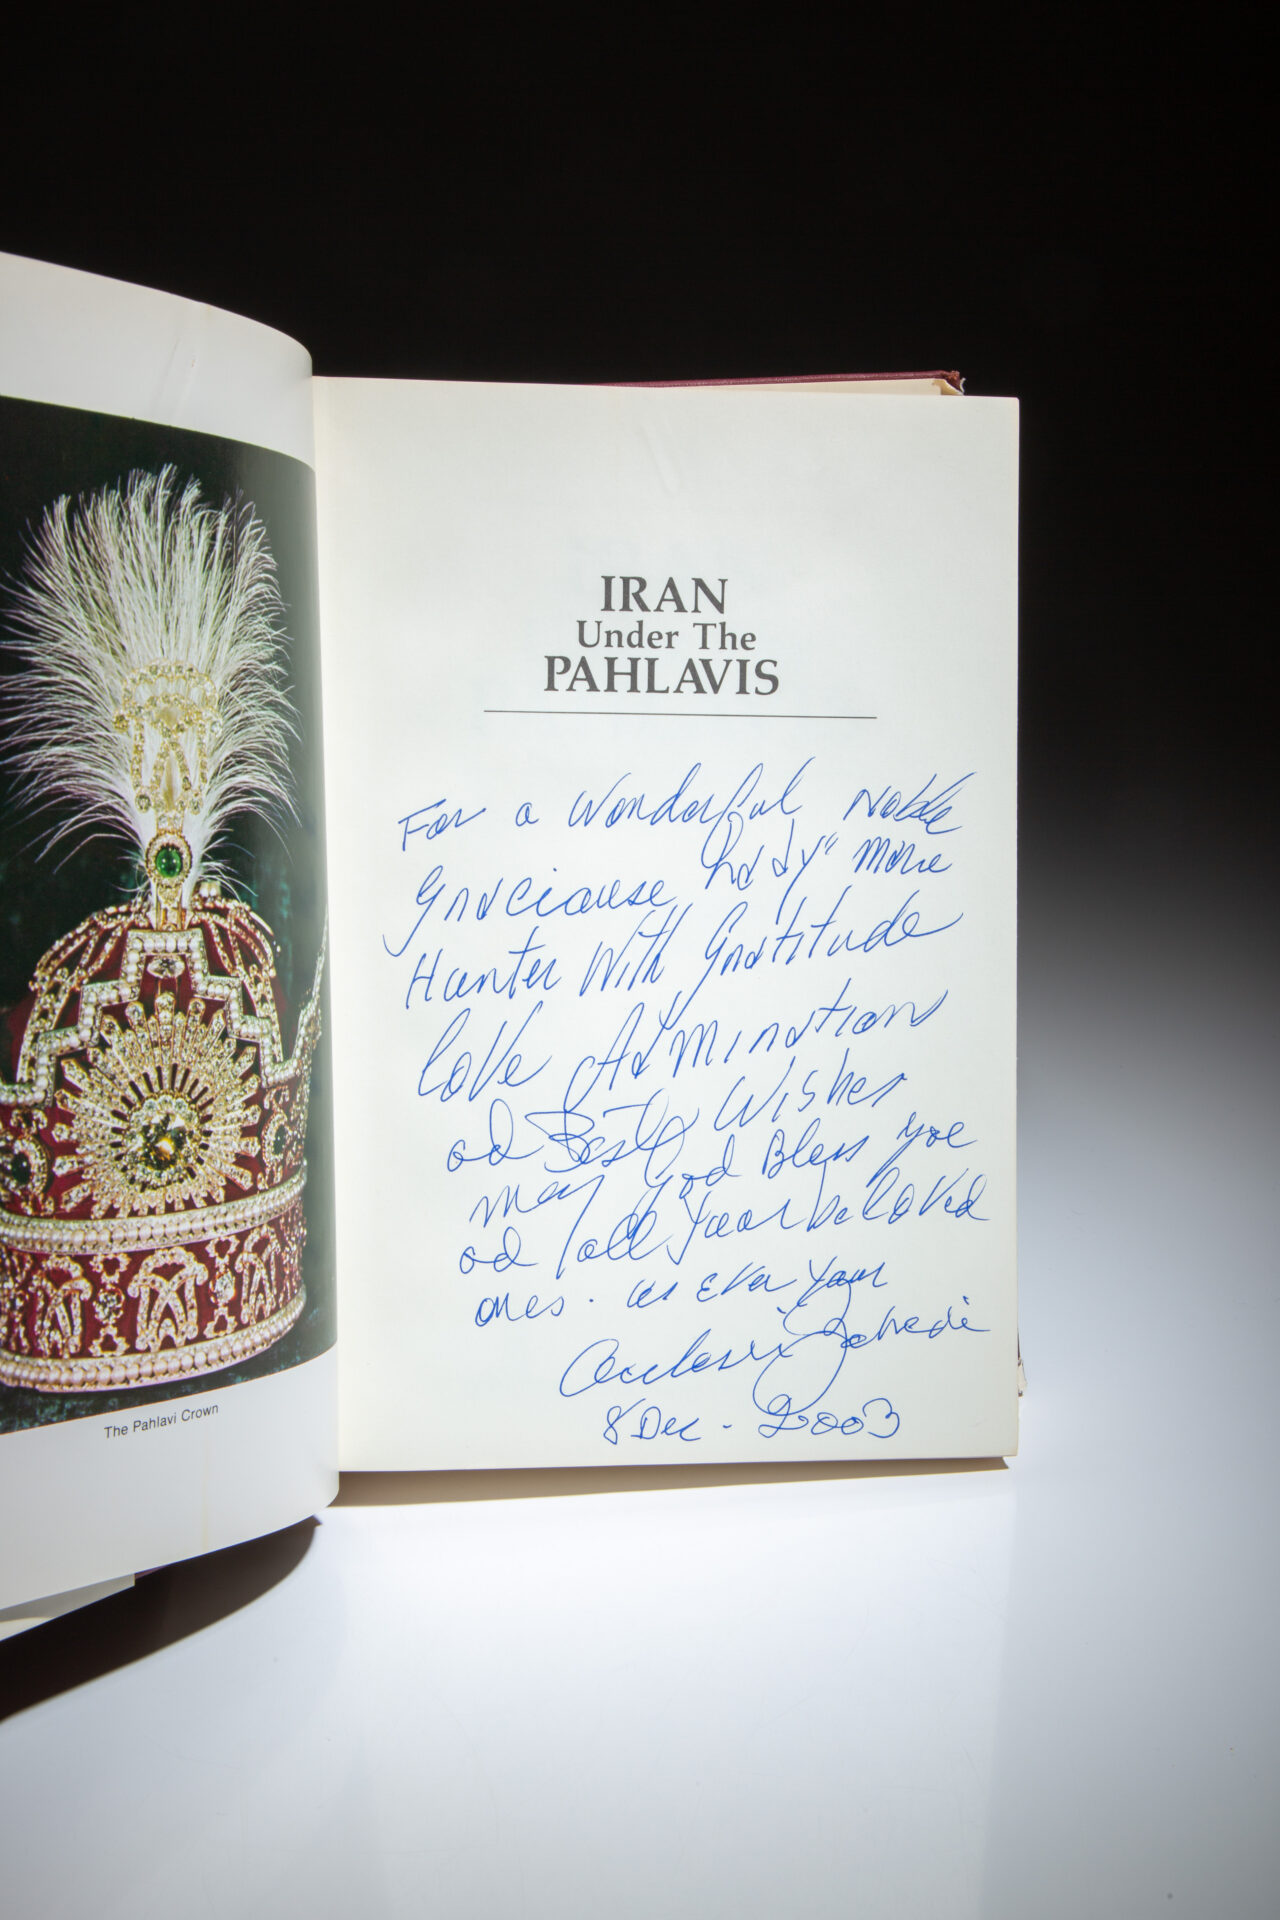 The Pahlavi Crown
IRAN
Under The
PAHLAVIS
For a wonderful Noble
Graciouse Lady" Marie
Hunter With Gratitude
love Admiration
ad Best Wishes
may God Bless you
ad all your beloved
ones. as Ever Your
Zahedi
8 Dec - 2003